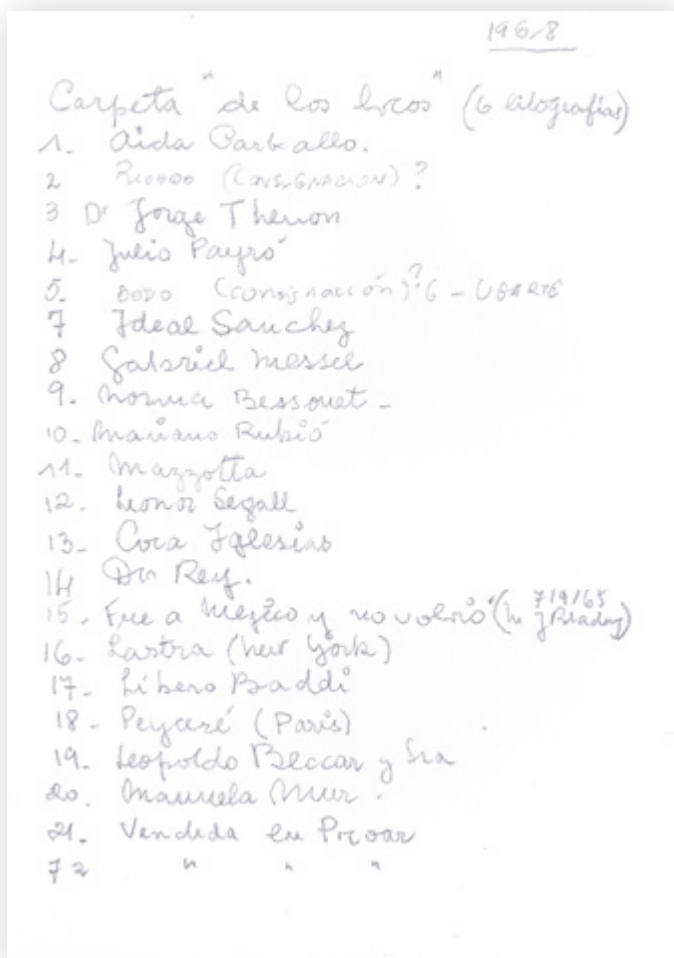 1968
Carpeta "de los locos" (6 litografías)
1. Aida Carballo.
2 (CONSIGNACION)?
3 Dr Jorge Thenon
4. Julio Payró
5. DODO (consignación)? 6 - UGARTE
7 Ideal Sanchez
8 Gabriel Messil
9. Norma Bessouet -
10. Mariano Rubió
11. Mazzotta
12. Leonor Segall
13- Cora Iglesias
14 Dr Rey.
15. Fue a Mejico y no volvió (
16- Lastra (New York)
17- Líbero Baddi
18- (Paris)
19. Leopoldo Beccar y Sra
20. Manuela Mur.
21. Vendida en Proar
72 " " "